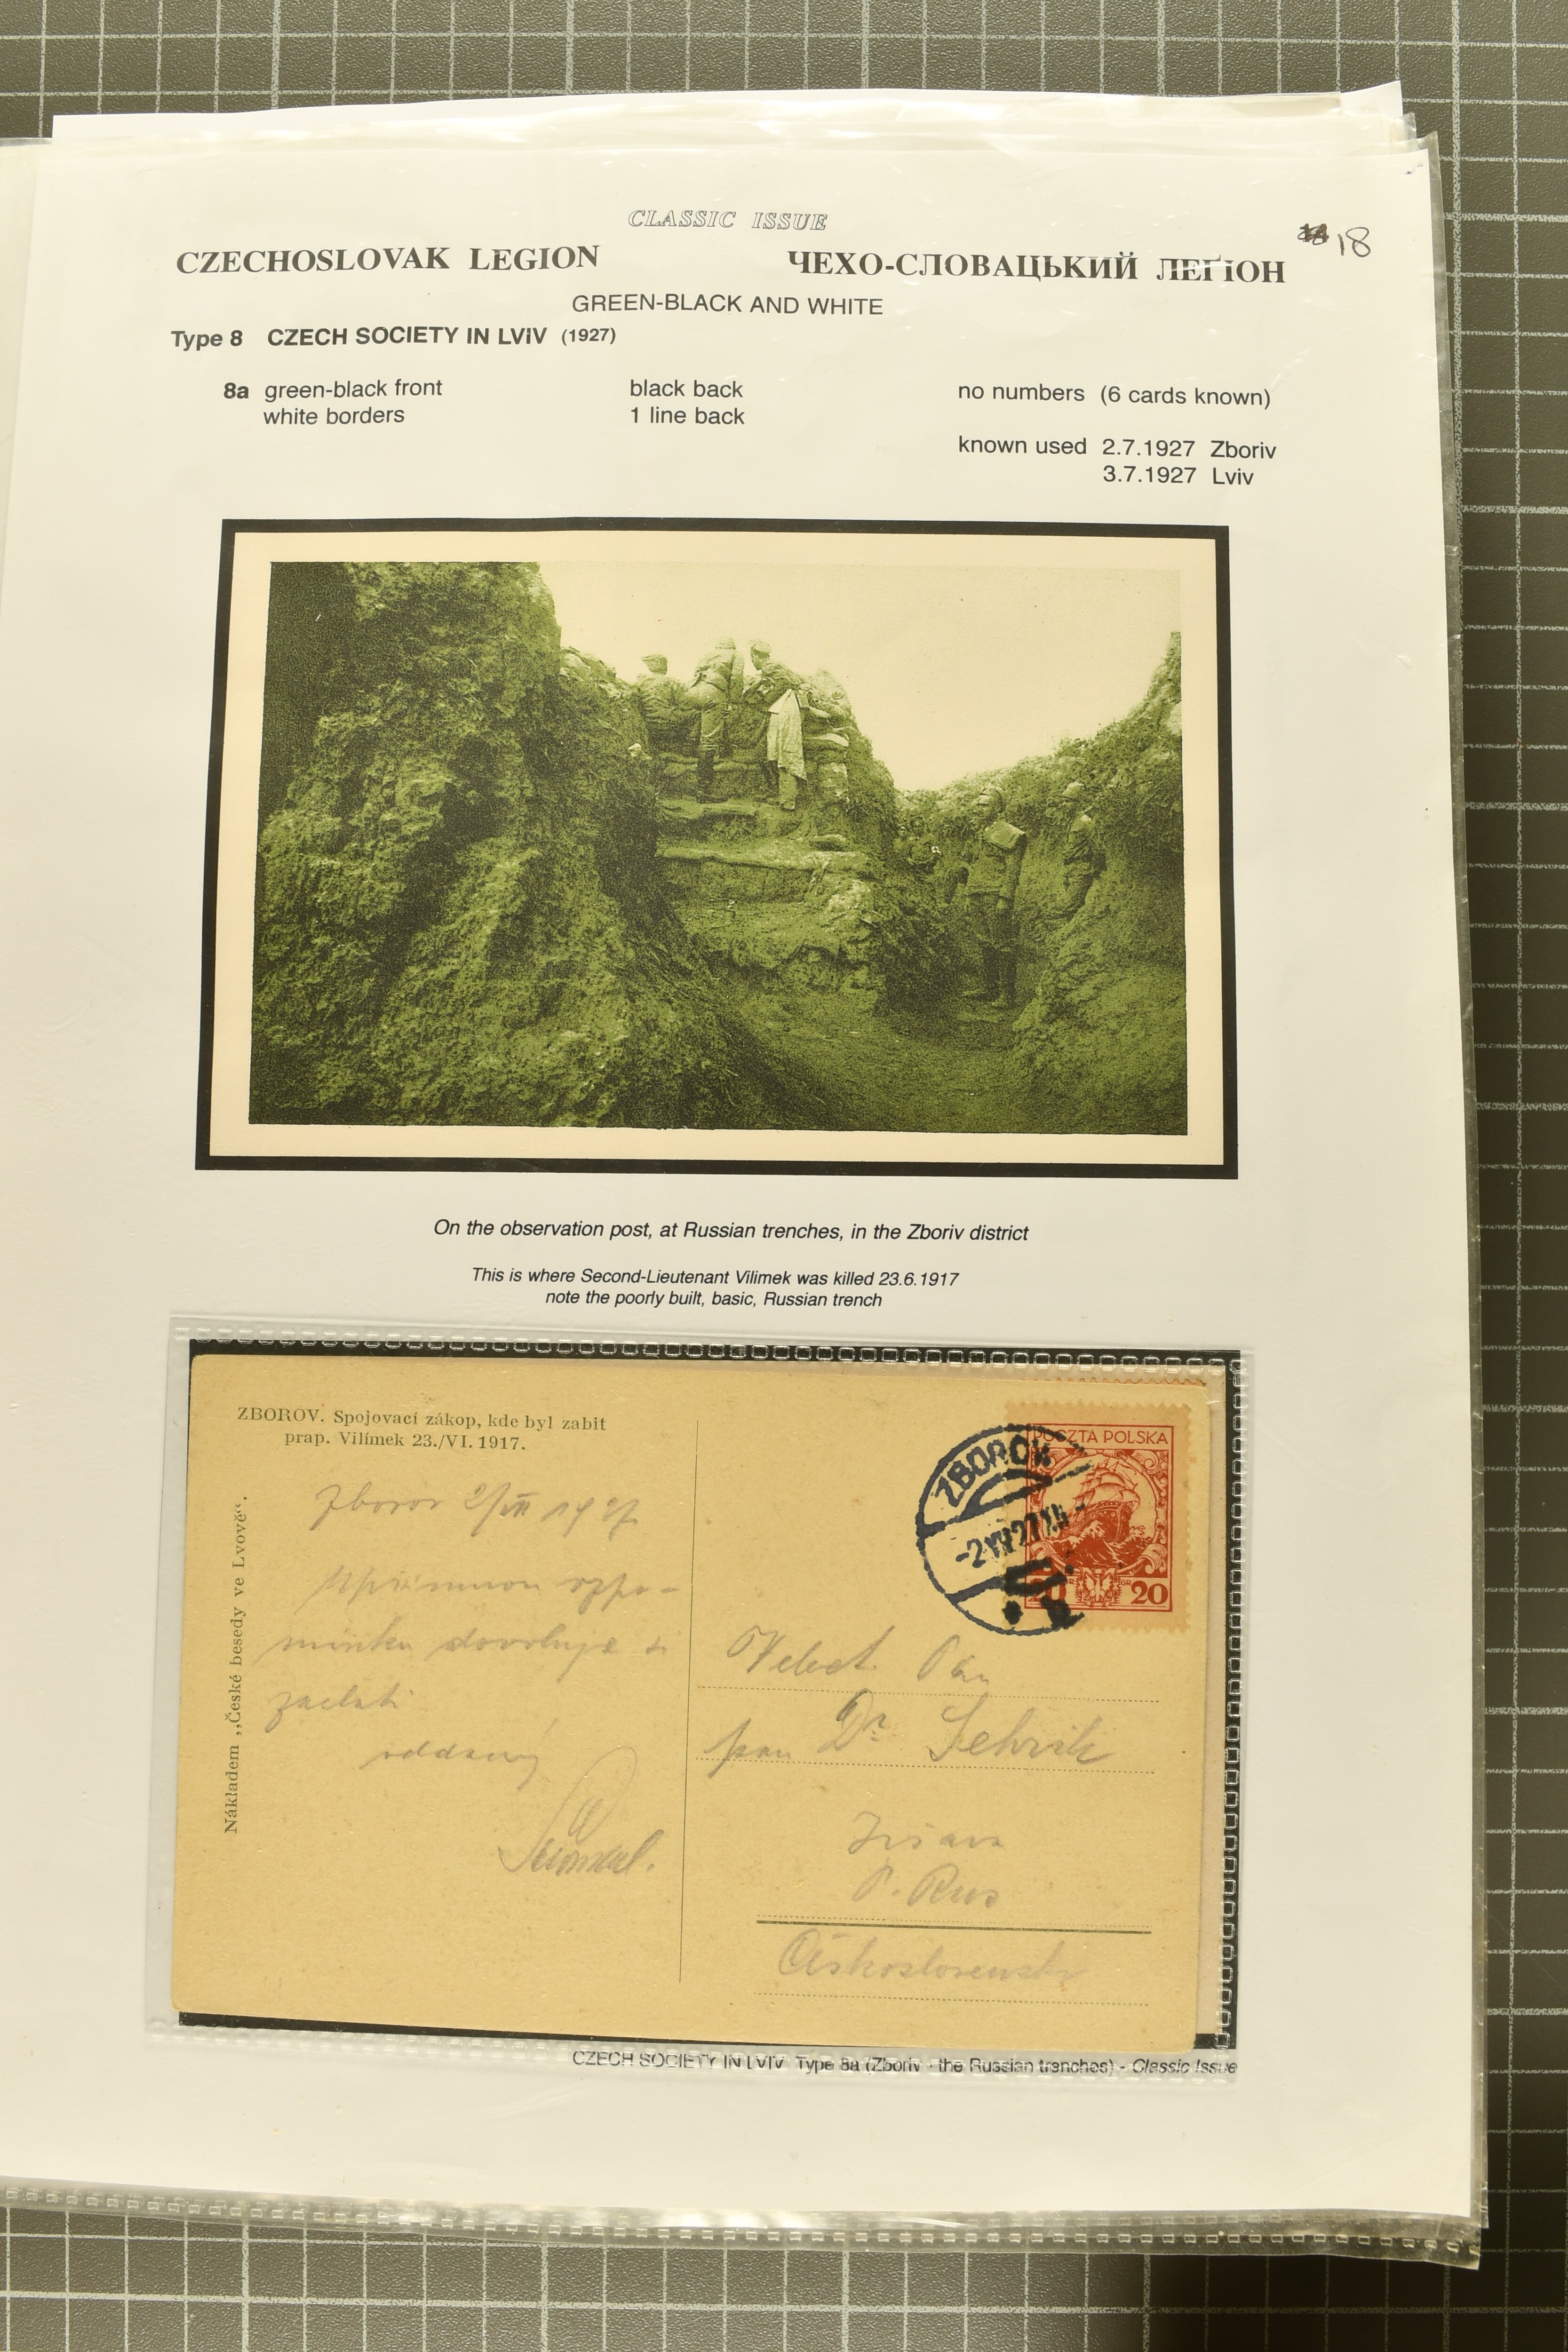 CLASSIC ISSUE
18
CZECHOSLOVAK LEGION ЧЕХО-СЛОВАЦЬКИЙ ЛЕҐІОН
GREEN-BLACK AND WHITE
Type 8 CZECH SOCIETY IN LVIV (1927)
8a green-black front black back no numbers (6 cards known)
white borders 1 line back
known used 2.7.1927 Zboriv
3.7.1927 Lviv
On the observation post, at Russian trenches, in the Zboriv district
This is where Second-Lieutenant Vilimek was killed 23.6.1917
note the poorly built, basic, Russian trench
ZBOROV. Spojovací zákop, kde byl zabit
prap. Vilímek 23./VI. 1917.
Nákladem „České besedy ve Lvově“.
Zborov 2/VII 1927
dovoluje si
zaslati
oddaný
POCZTA POLSKA
20 GR GR 20
ZBORÓW
-2 VII 27
Pan
pan Dr
P. Rus
Československo
CZECH SOCIETY IN LVIV Type 8a (Zboriv - the Russian trenches) - Classic Issue